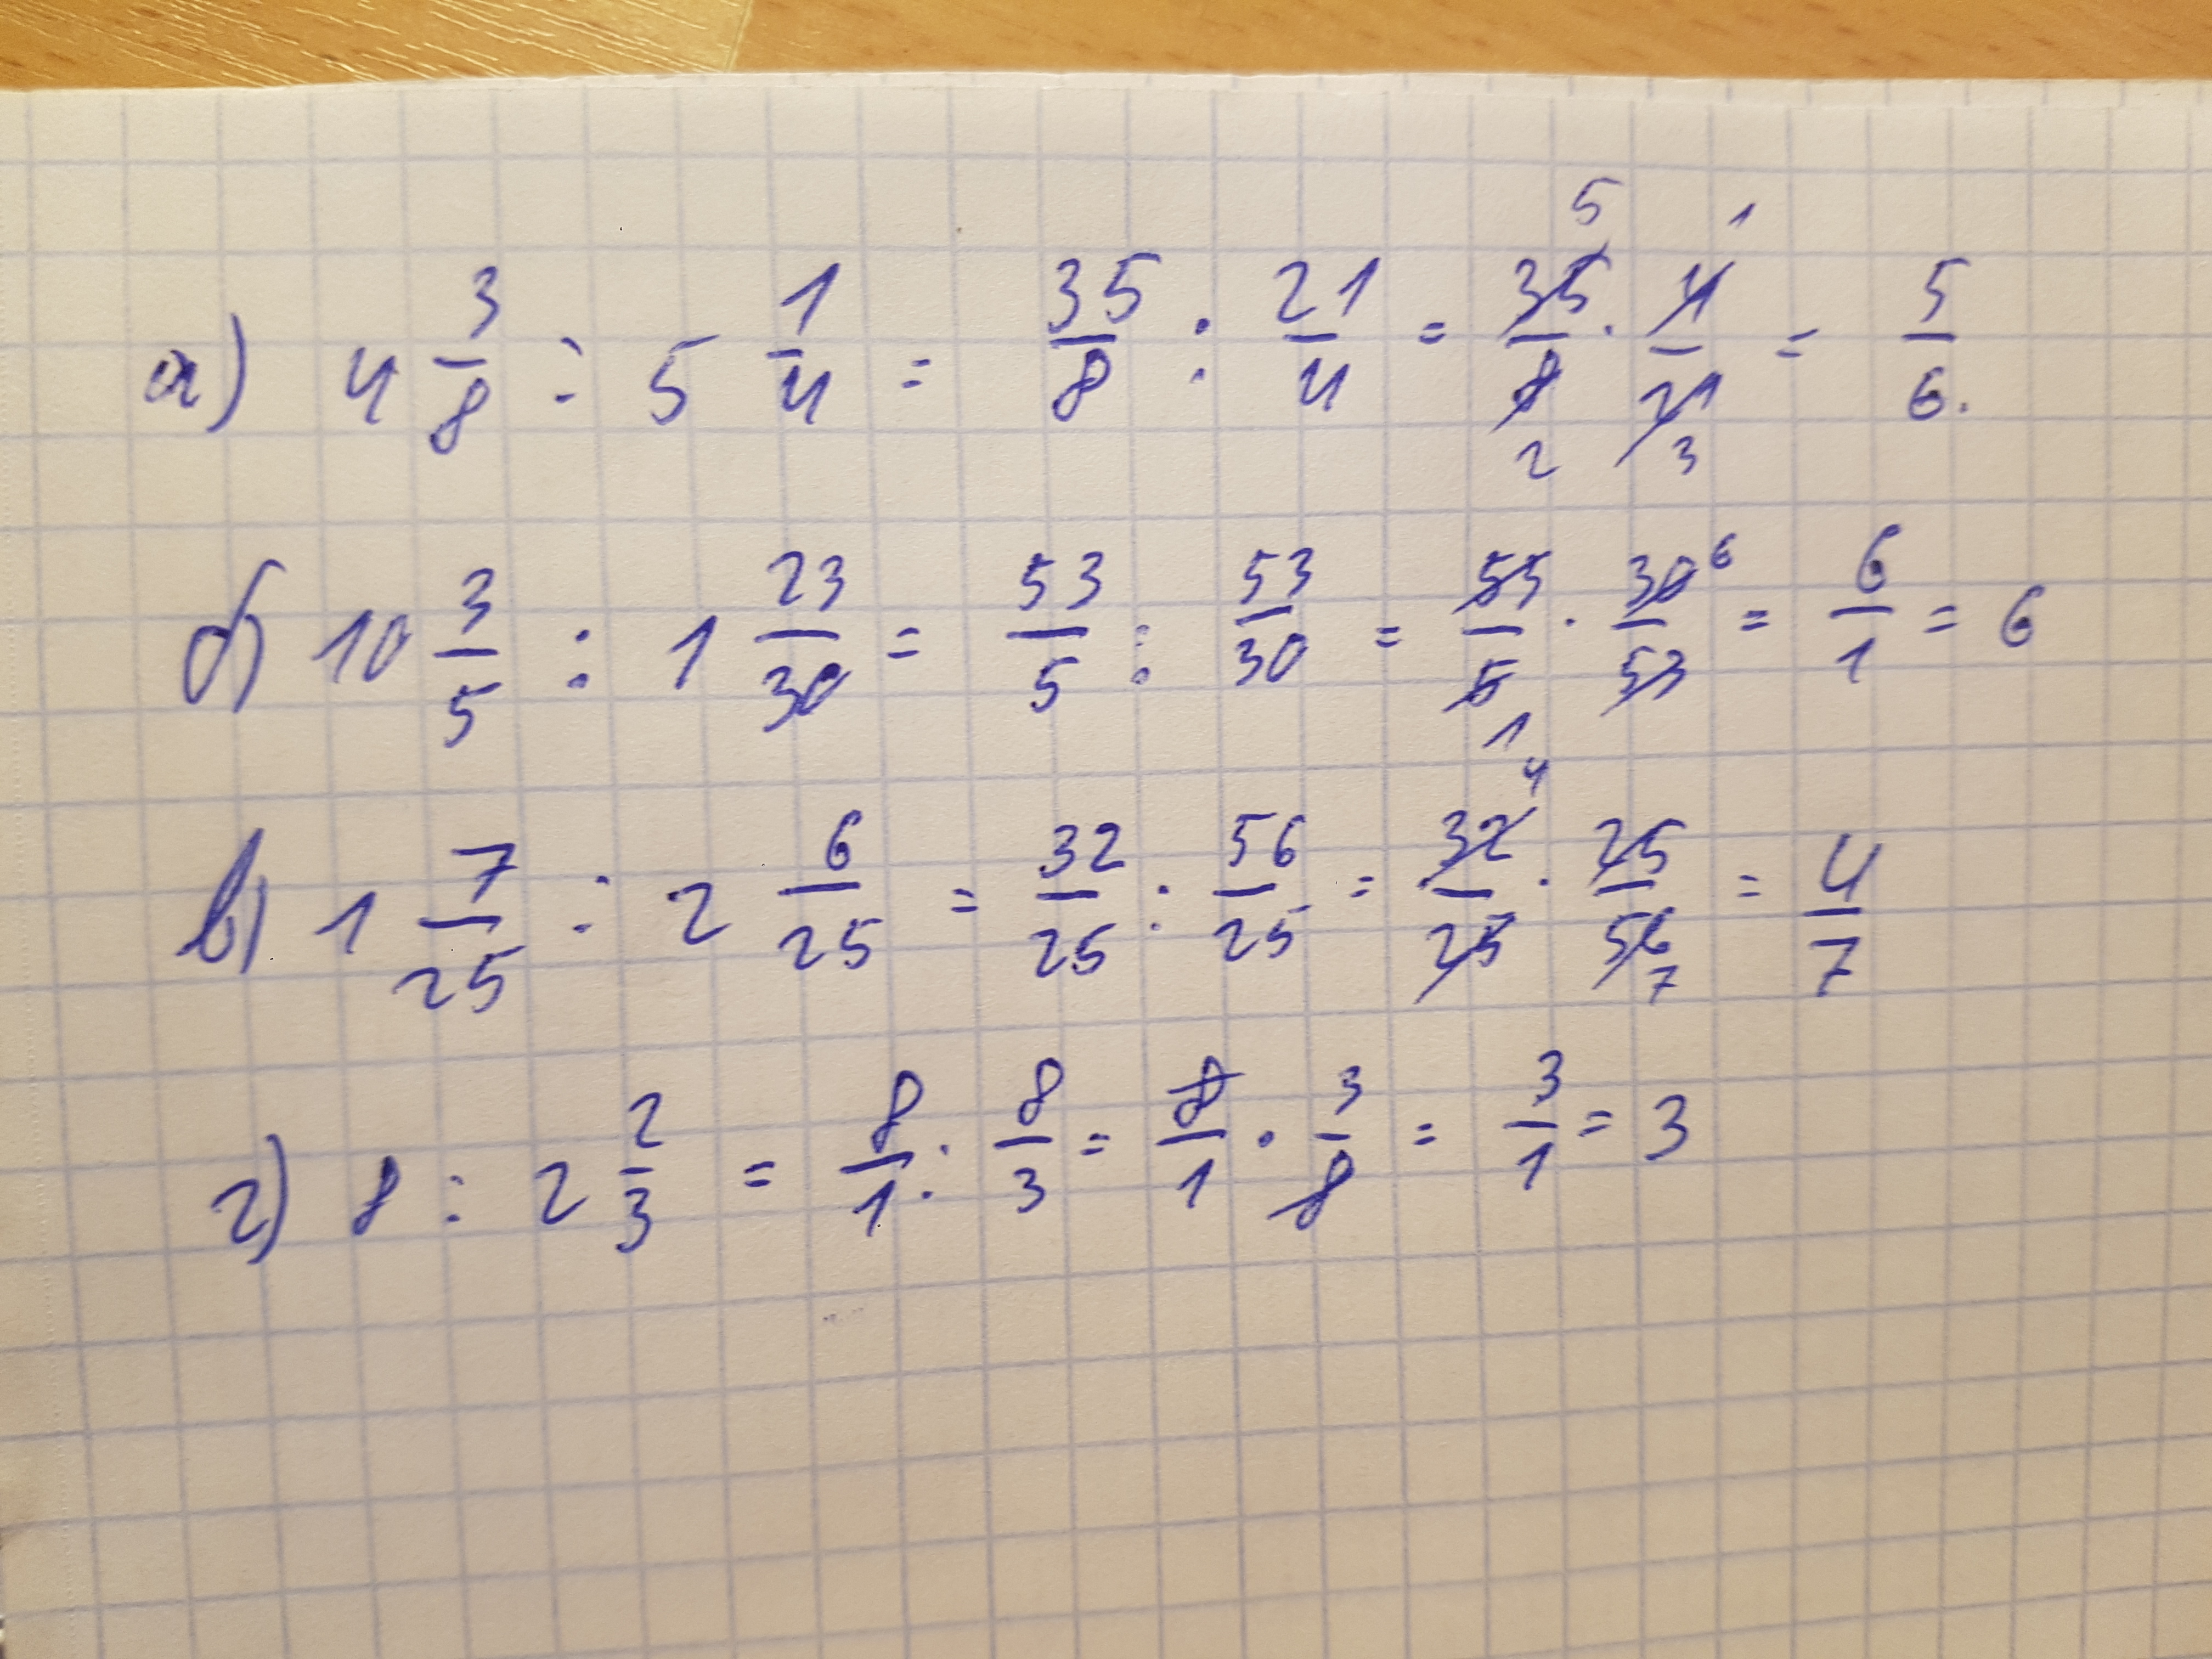 а) 4 3/8 : 5 1/4 = 35/8 : 21/4 = 35/8 5 2 · 4/21 1 3 = 5/6.
б) 10 3/5 : 1 23/30 = 53/5 : 53/30 = 53/5 1 · 30/53 6 = 6/1 = 6
в) 1 7/25 : 2 6/25 = 32/25 : 56/25 = 32/25 4 · 25/56 7 = 4/7
г) 8 : 2 2/3 = 8/1 : 8/3 = 8/1 · 3/8 = 3/1 = 3